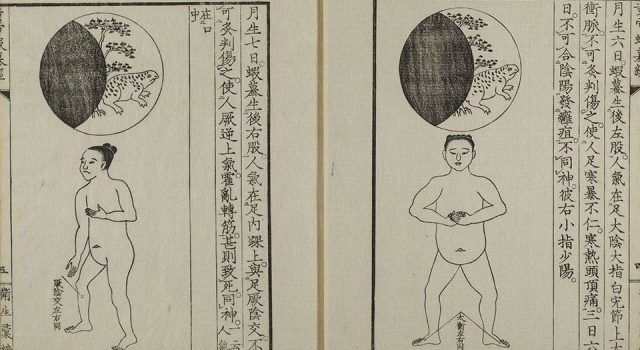 月生六日。蝦蟇生後左股。人氣在足大陰大指白完節上
衝脈。不可灸判傷之。使人足寒暴不仁。寒熱頭頂痛。三日六
日。不可合陰陽發癰疽。不同神。彼右小指少陽。
太衝左右同
月生七日。蝦蟇生後右股。人氣在足內踝上與足厥陰交。不
可灸判傷之。使人厥逆上氣。霍亂轉筋。甚則致死。同神。
在口中
厥陰交左右同
五
衛生彙